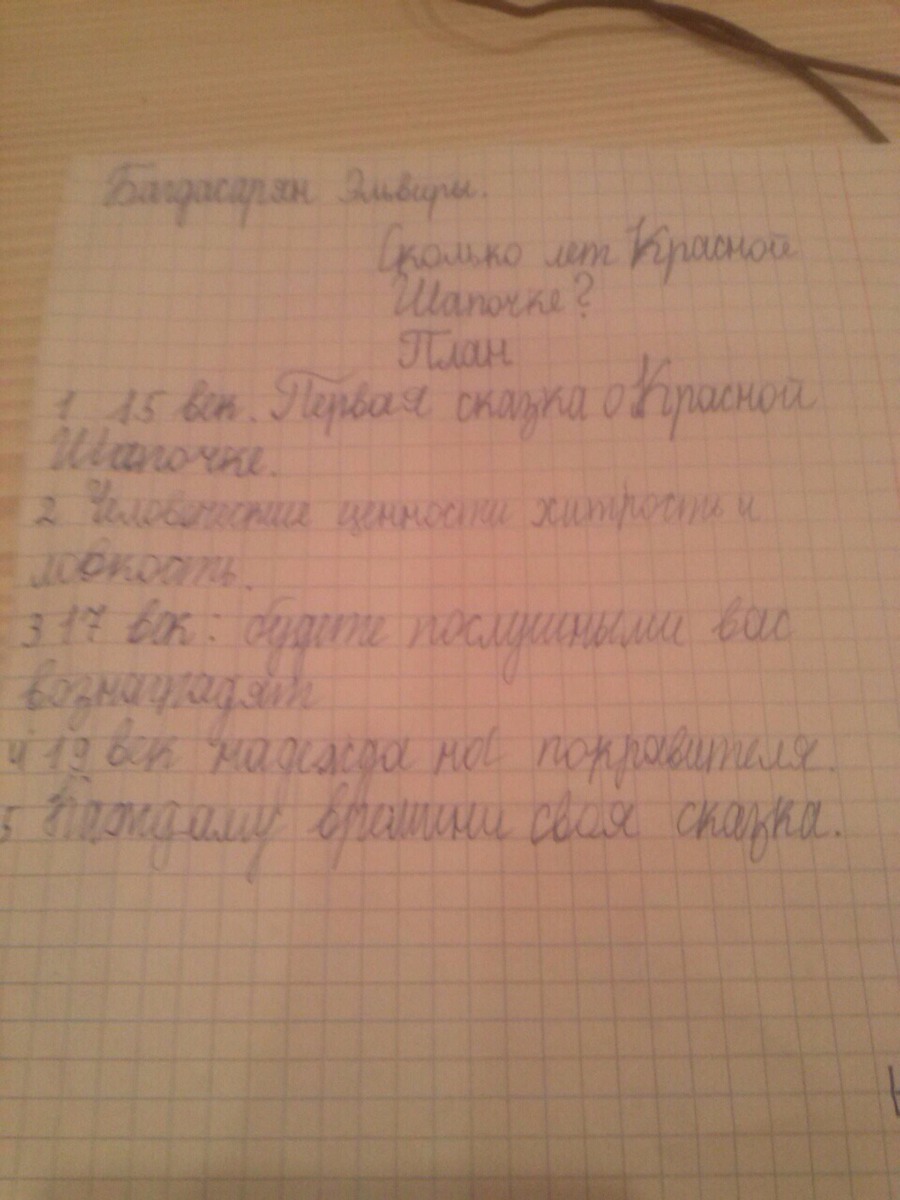 Багдасарян Эльвиры.
Сколько лет Красной
Шапочке?
План
1 15 век. Первая сказка о Красной
Шапочке.
2 Человеческие ценности хитрость и
ловкость.
3 17 век: будите послушными вас
вознаградят
4 19 век надежда на покравителя.
5 Каждаму времини своя сказка.